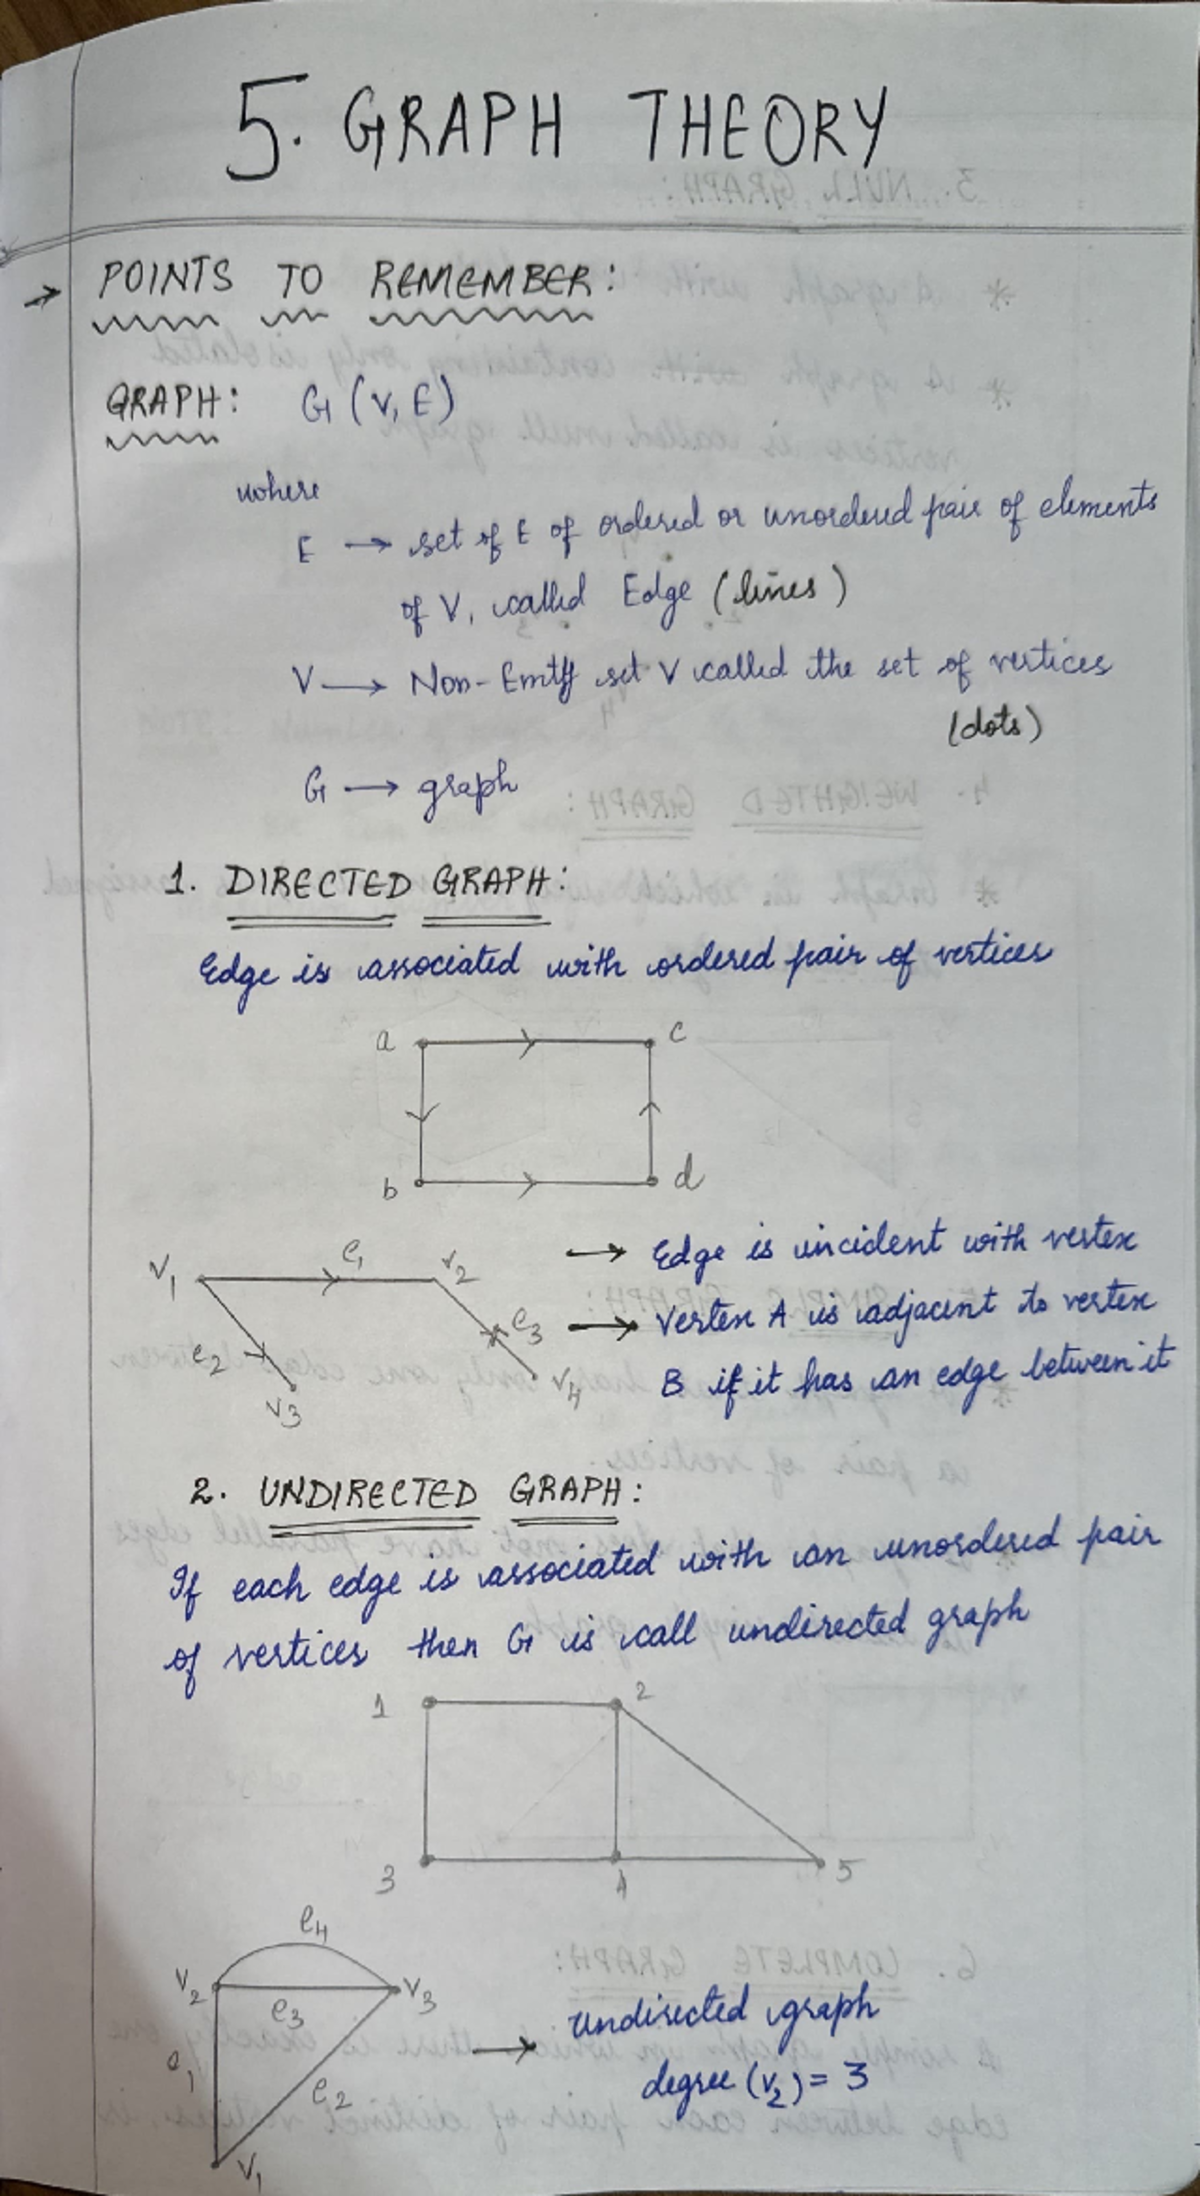 5. GRAPH THEORY
→ POINTS TO REMEMBER:
GRAPH: G (V, E)
where
E → set of E of ordered or unordered pair of elements
of V, called Edge (lines)
V → Non-Emty set V called the set of vertices
(dots)
G → graph
1. DIRECTED GRAPH:
Edge is associated with ordered pair of vertices
a c
b d
V1 e1 V2
e2 e3
V3 V4
→ Edge is incident with vertex
→ Vertex A is adjacent to vertex
B if it has an edge between it
2. UNDIRECTED GRAPH:
If each edge is associated with an unordered pair
of vertices then G is call undirected graph
1 2
3 4 5
e4
V2 e3 V3
e1 e2
V1
→ undirected graph
degree (V2) = 3